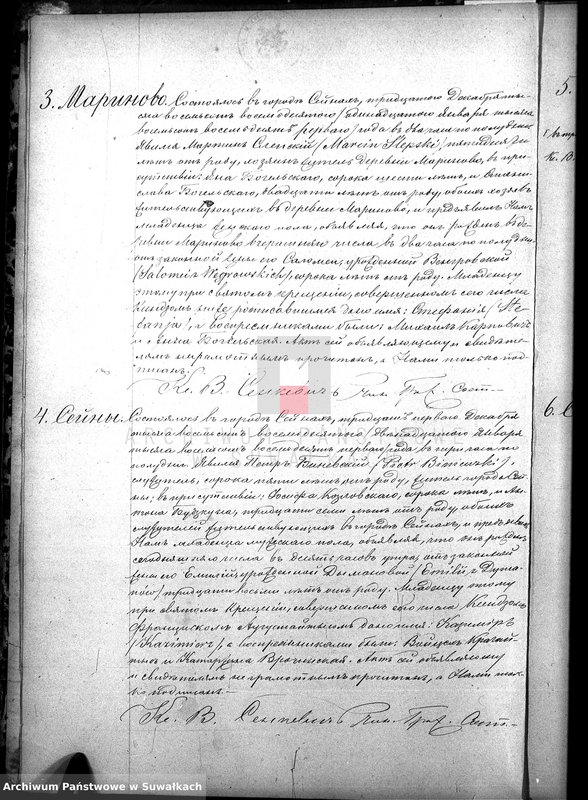 3. Мариново. Состоялось въ городѣ Сейнахъ, тридцатого Декабря ты-
сяча восемьсотъ восемьдесятого /одиннадцатого Января тысяча
восемьсотъ восемьдесятъ перваго/ года въ два часа по полудни.
Явился Мартинъ Слепскій /Marcin Slepski/ пятидесяти
лѣтъ отъ роду, хозяинъ житель деревни Мариново, въ при-
сутствіи: Яна Богельского, сорока шести лѣтъ, и Стани-
слава Богельского, двадцати лѣтъ отъ роду, обоихъ хозяевъ
жительствующихъ въ деревни Мариново, и предъявилъ Намъ
младенца женского пола, объявляя, что онъ родился въ де-
ревни Мариново вчерашняго числа въ два часа по полудни,
отъ законной жены его Саломеи, урожденной Венгровской
/Salomei z Węgrowskich/, сорока лѣтъ отъ роду. Младенцу
этому при святомъ крещеніи, совершенномъ сего числа
Ксендзомъ ниже росписавшимся дано имя: Стефанія /Ste-
fania/, а воспреемниками были: Михаилъ Карповичъ
и Анна Богельская. Актъ сей объявляющему и свидѣте-
лямъ неграмотнымъ прочитанъ, а Нами только под-
писанъ.
Кс. В. Сенкевичъ
4. Сейны. Состоялось въ городѣ Сейнахъ, тридцать перваго Декабря
тысяча восемьсотъ восемьдесятого /двѣнадцатого Января
тысяча восемьсотъ восемьдесятъ перваго/ года въ три часа по
полудни. Явился Петръ /Piotr/,
служитель, сорока пяти лѣтъ отъ роду, житель города Сей-
ны; въ присутствіи: Іосифа Козловского, сорока лѣтъ, и Ан-
тона, тридцати семи лѣтъ отъ роду, обоихъ
служителей жительствующихъ въ городѣ Сейнахъ, и предъявилъ
Намъ младенца мужеского пола, объявляя, что онъ родился
сегодняшняго числа въ десять часовъ утра, отъ законной
жены его Емиліи урожденной /Emilii z/
/тридцати восьми лѣтъ отъ роду. Младенцу этому
при святомъ Крещеніи, совершенномъ сего числа Ксендзомъ
Францискомъ дано имя: Казиміръ
/Kazimierz/, а воспреемниками были:
и Катаржина. Актъ сей объявляющему
и свидѣтелямъ не грамотнымъ прочитанъ, а Нами толь-
ко подписанъ.
Кс. В. Сенкевичъ
5.
6. С
Archiwum Państwowe w Suwałkach